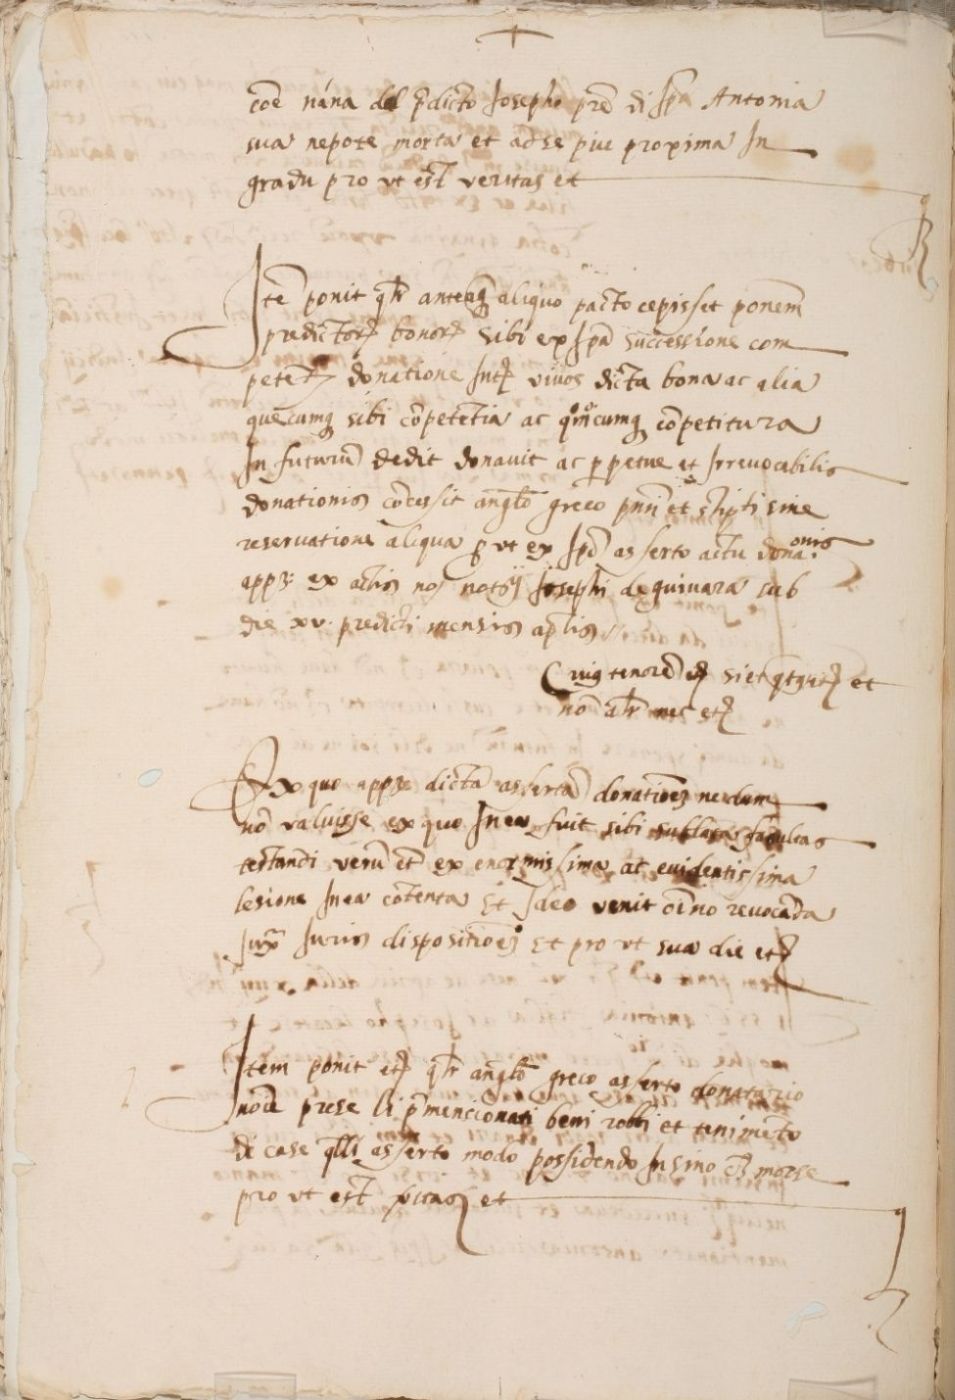 coe nana del p̄dicto Josepho pre di Spa Antonia
sua nepote morta et ad se piu proxima In
gradu pro vt est veritas et
Ite ponit qlr ante aliquo pacto cepisset
predictor bonor sibi ex Ipa successione com
petet donatione Int vivos dicta bona ac alia
quecumq sibi copetetia ac cumq copetitura
In futuru dedit donavit ac perpetue et Irrevocabilis
donationis cocessit anglo greco et sine
reservatione aliqua p vt ex Ipo asserto actu dona.onis
app3 ex actis Josephi de guinara sub
die xv. predicti mensis aplis
Cuiq tenore si et et
no alr nec et
Ex quo app3 dicta asserta donatioe nedum
no valuisse ex quo In ea fuit sibi sublata facultas
testandi veru et ex enormissima ac evidentissima
lesione In ea cotenta Et Ideo venit oino revocada
Jux Juris dispositioe Et pro vt sua die et
Item ponit et qlr anglo greco asserto donatario
nove prese li pmencionati beni robbi et tenimeto
di case qlli asserto modo possidendo Insino morse
pro vt est veritas et